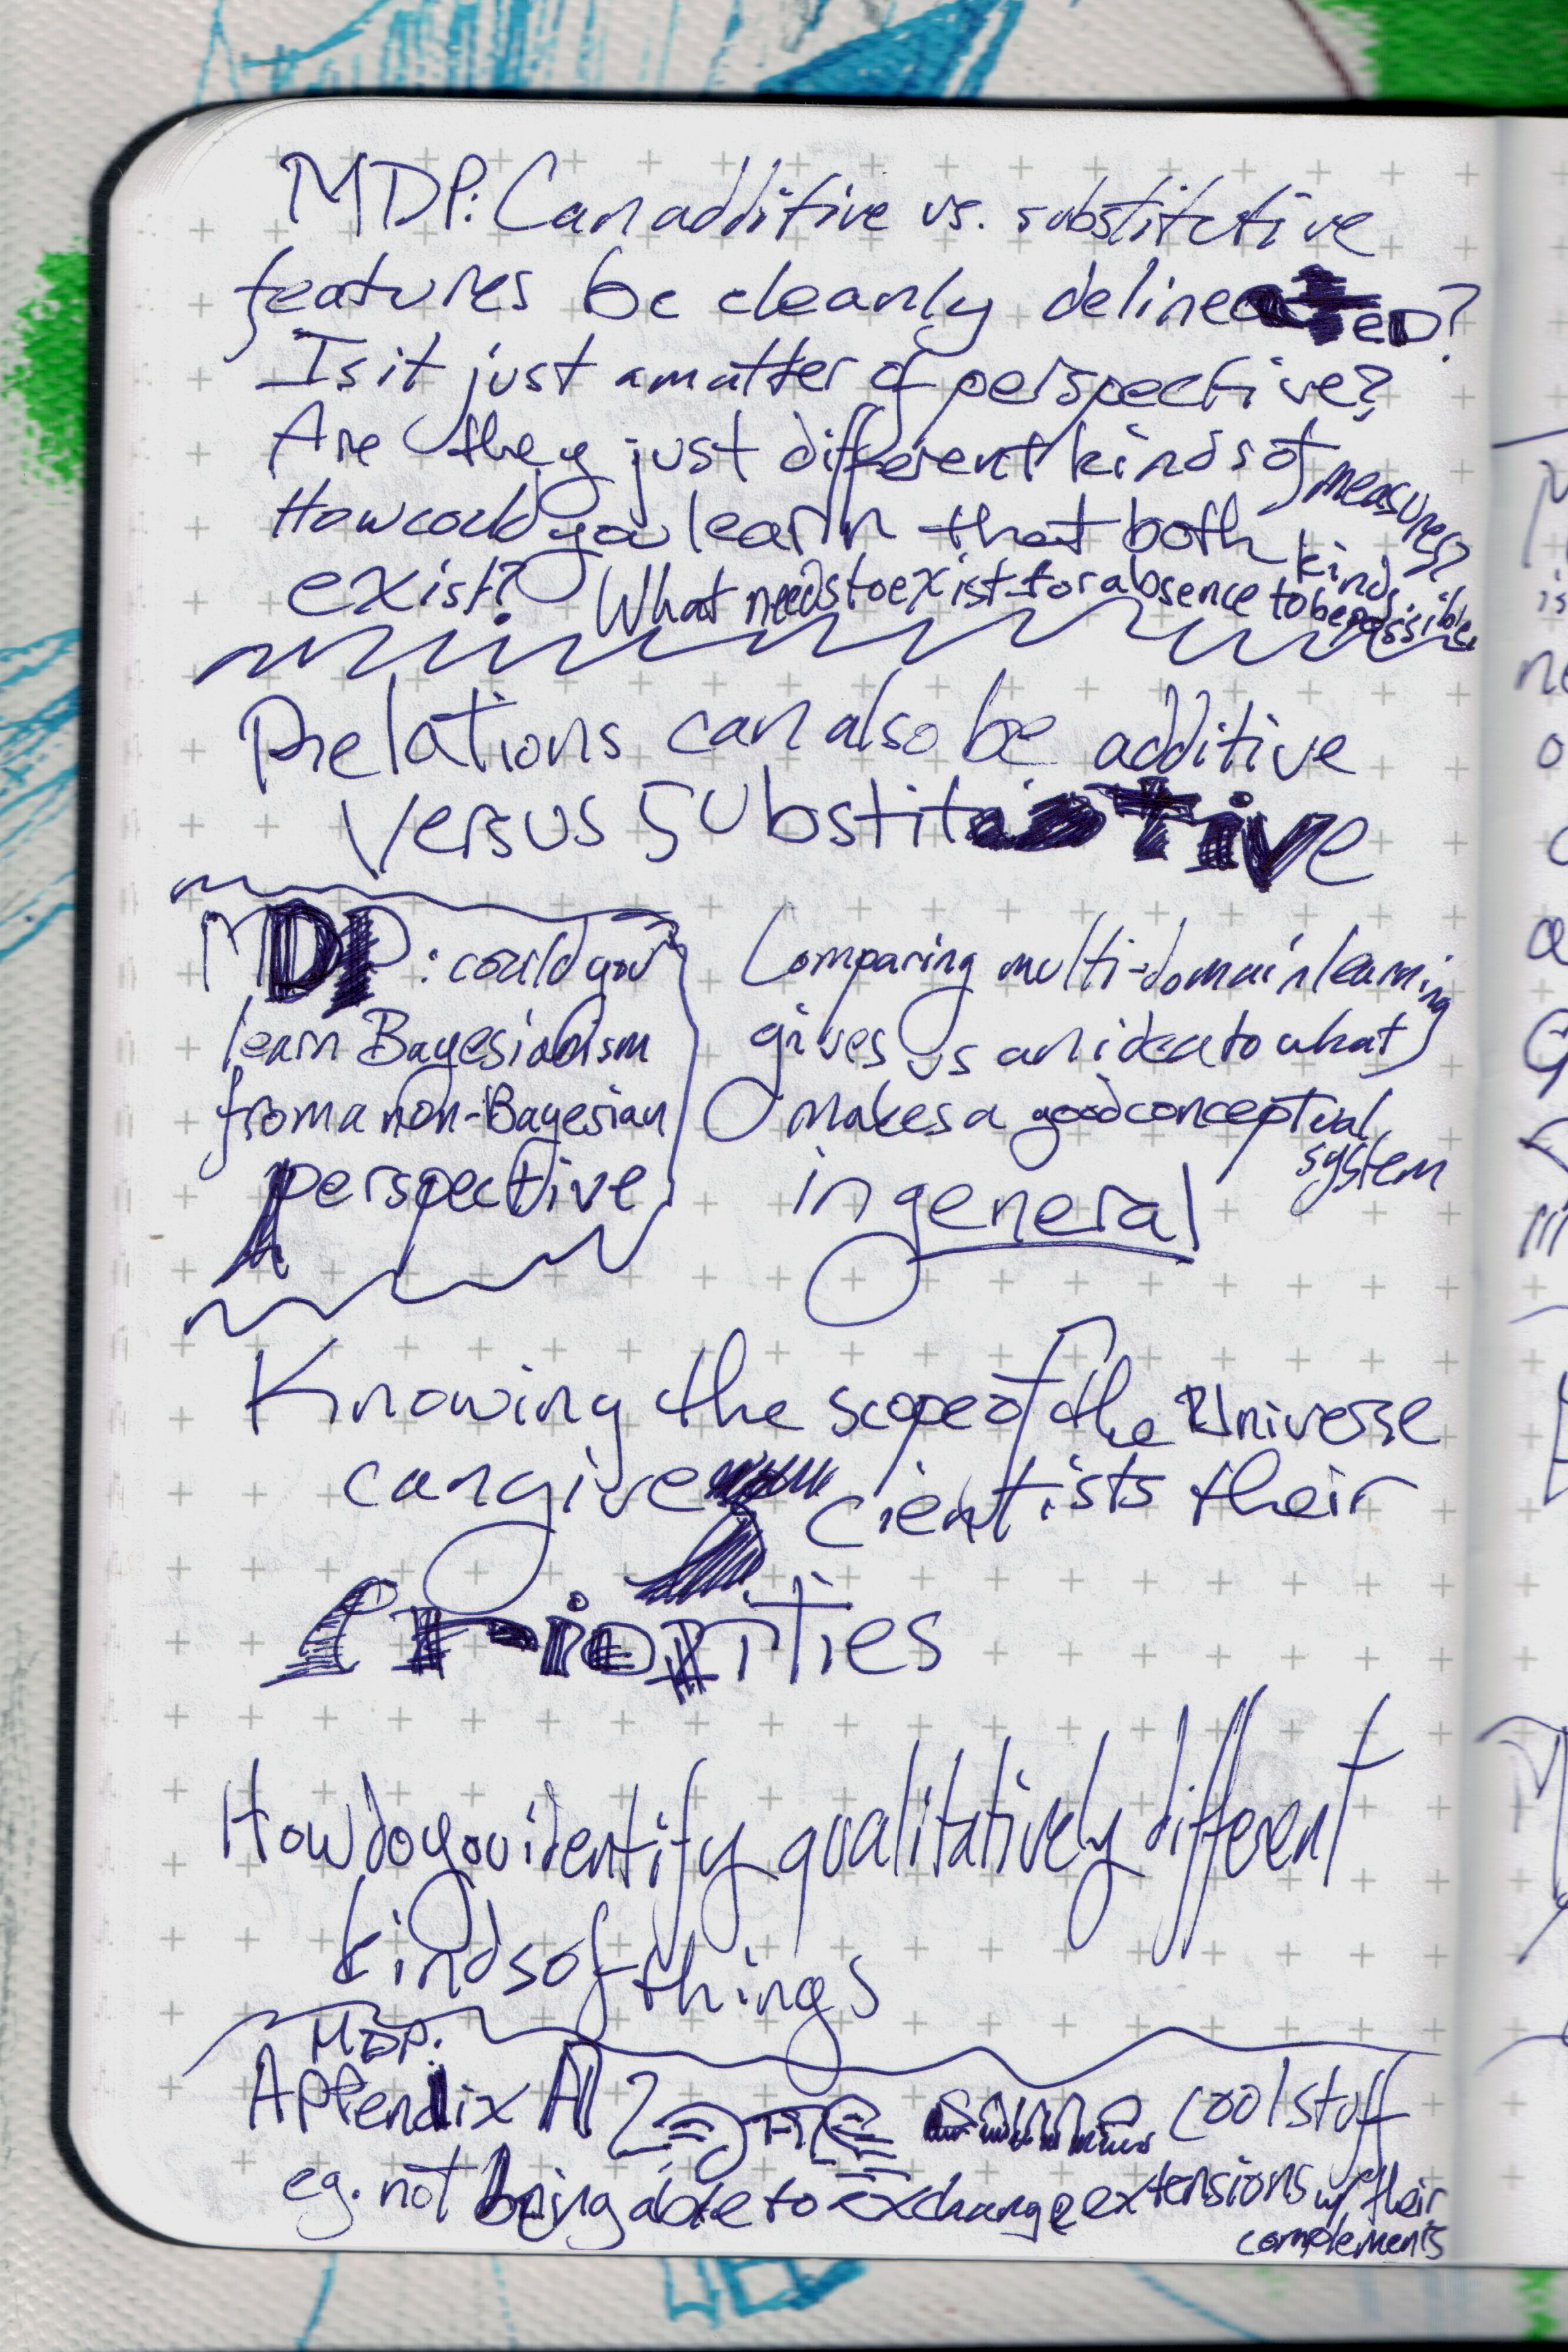 MDP: Can additive vs. substitutive
features be cleanly delineated?
Is it just a matter of perspective?
Are they just different kinds of measures?
How could you learn that both kinds
exist? What needs to exist for absence to be possible.
Relations can also be additive
versus substitutive
MDP: could you
learn Bayesianism
from a non-Bayesian
perspective
Comparing multi-domain learning
gives us an idea to what
makes a good conceptual
system
in general
Knowing the scope of the Universe
can give scientists their
Priorities
How do you identify qualitatively different
kinds of things
MDP:
Appendix A cool stuff
eg. not being able to exchange extensions w/ their
complements